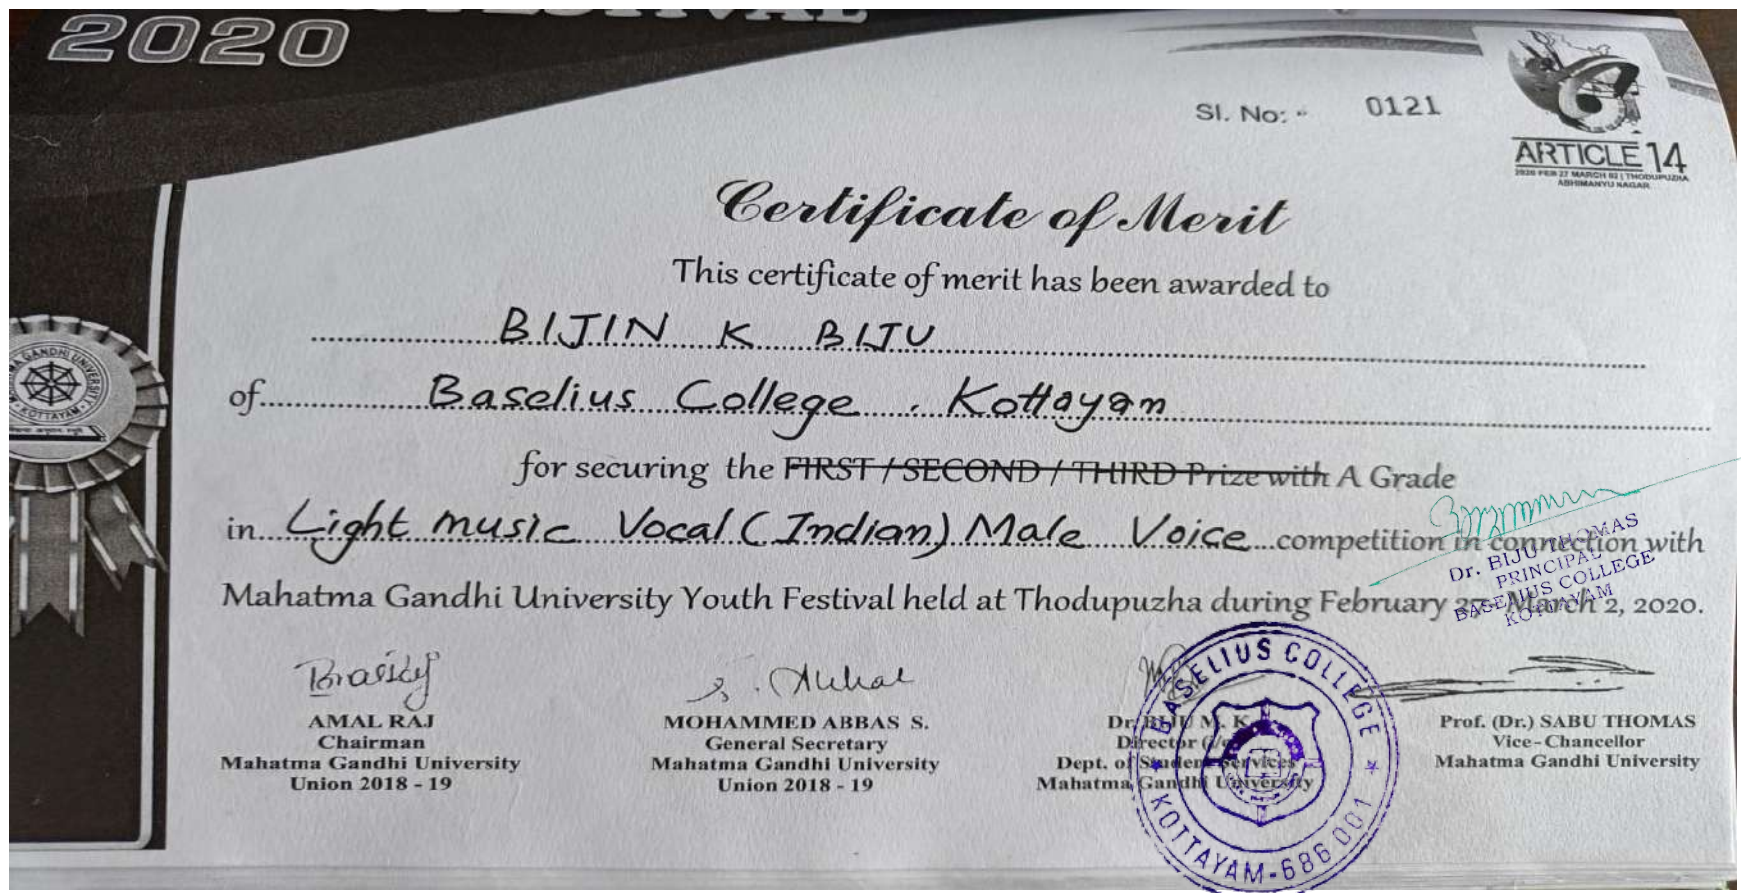 FESTIVAL
2020
Sl. No: - 0121
ARTICLE 14
2020 FEB 27 MARCH 02 | THODUPUZHA
ABHIMANYU NAGAR
Certificate of Merit
This certificate of merit has been awarded to
BIJIN K BIJU
of Baselius College, Kottayam
for securing the FIRST / SECOND / THIRD Prize with A Grade
in Light music Vocal (Indian) Male Voice competition in connection with
Mahatma Gandhi University Youth Festival held at Thodupuzha during February 27 - March 2, 2020.
Dr. BIJU THOMAS
PRINCIPAL
BASELIUS COLLEGE
KOTTAYAM
GANDHI UNIVERSITY
KOTTAYAM
AMAL RAJ
Chairman
Mahatma Gandhi University
Union 2018 - 19
MOHAMMED ABBAS S.
General Secretary
Mahatma Gandhi University
Union 2018 - 19
Dr. BIJU M. K.
Director
Dept. of Student Services
Mahatma Gandhi University
Prof. (Dr.) SABU THOMAS
Vice-Chancellor
Mahatma Gandhi University
BASELIUS COLLEGE
KOTTAYAM-686 001